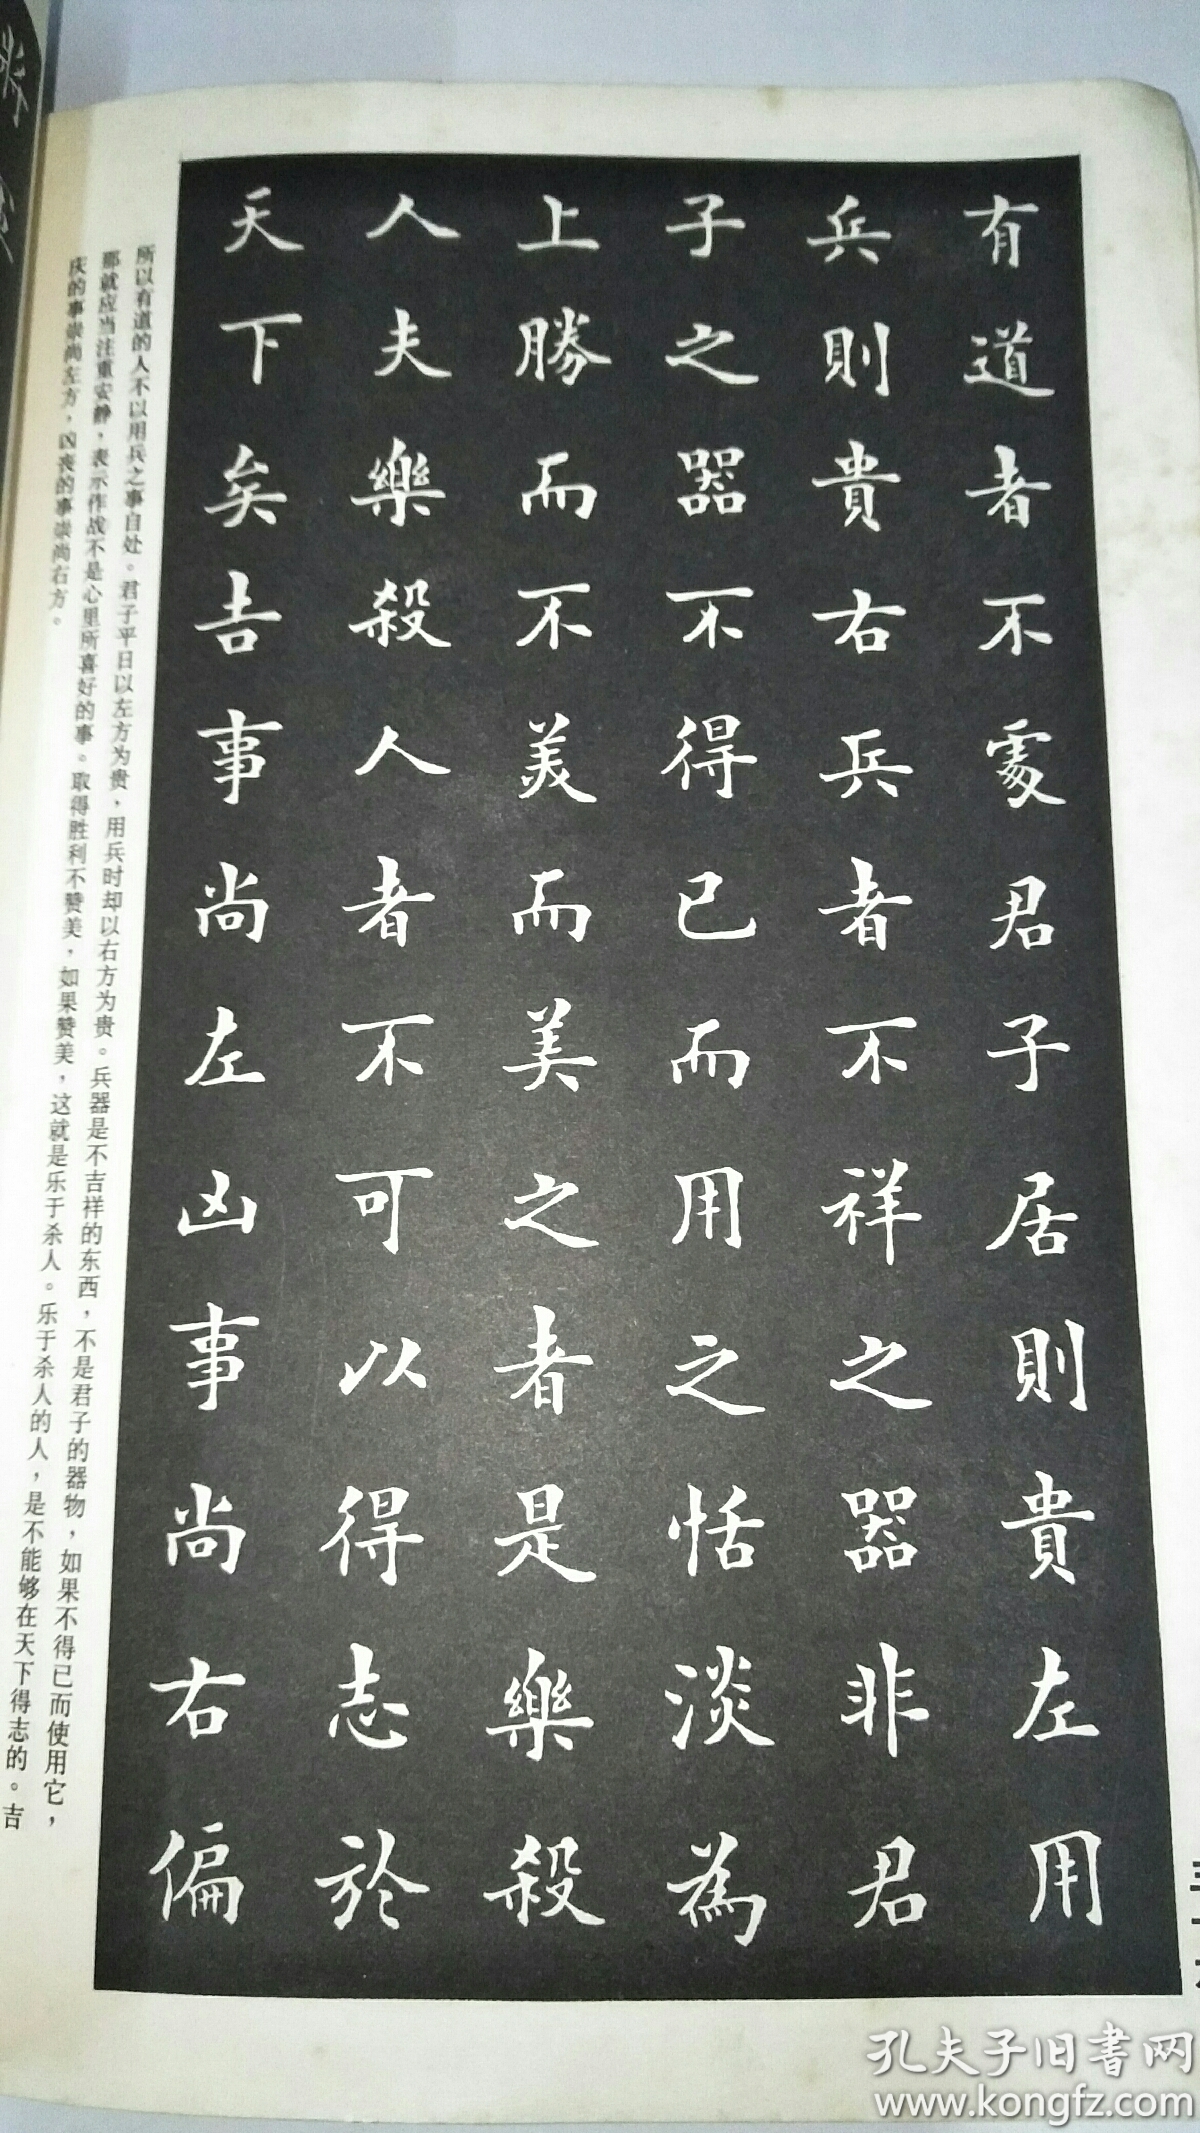 有道者不處君子居則貴左用
兵則貴右兵者不祥之器非君
子之器不得已而用之恬淡為
上勝而不美而美之者是樂殺
人夫樂殺人者不可以得志於
天下矣吉事尚左凶事尚右偏
所以有道的人不以用兵之事自处。君子平日以左方为贵，用兵时却以右方为贵。兵器是不吉祥的东西，不是君子的器物，如果不得已而使用它，
那就应当注重安静，表示作战不是心里所喜好的事。取得胜利不赞美，如果赞美，这就是乐于杀人。乐于杀人的人，是不能够在天下得志的。吉
庆的事崇尚左方，凶丧的事崇尚右方。
孔夫子旧書网
www.kongfz.com